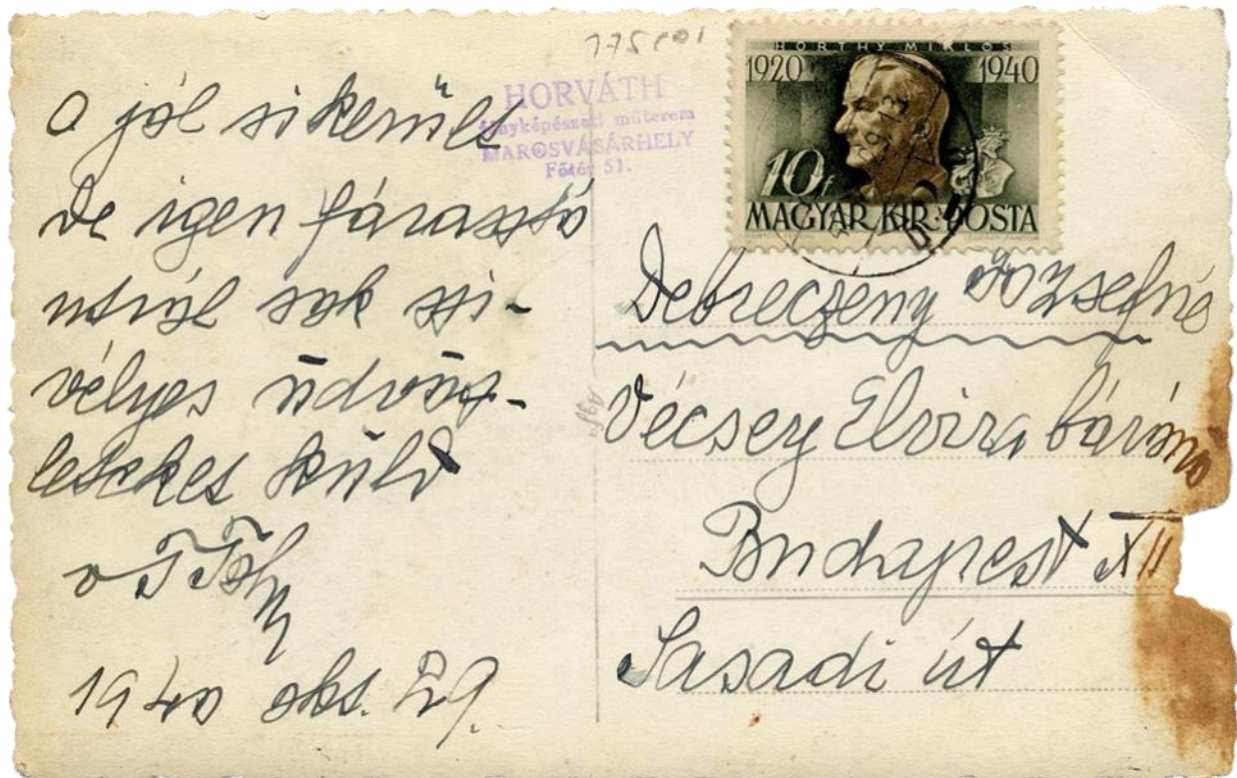 175
HORVÁTH
fényképészeti műterem
MAROSVÁSÁRHELY
Főtér 51.
HORTHY MIKLÓS
1920 1940
10f
MAGYAR KIR. POSTA
A jól sikerült
de igen fárasztó
útról sok szi-
vélyes üdvöz-
leteket küld
1940 okt. 29.
Agfa
Debreczeny Józsefné
Vécsey Elvira bárónő
Budapest XII
Sasadi út